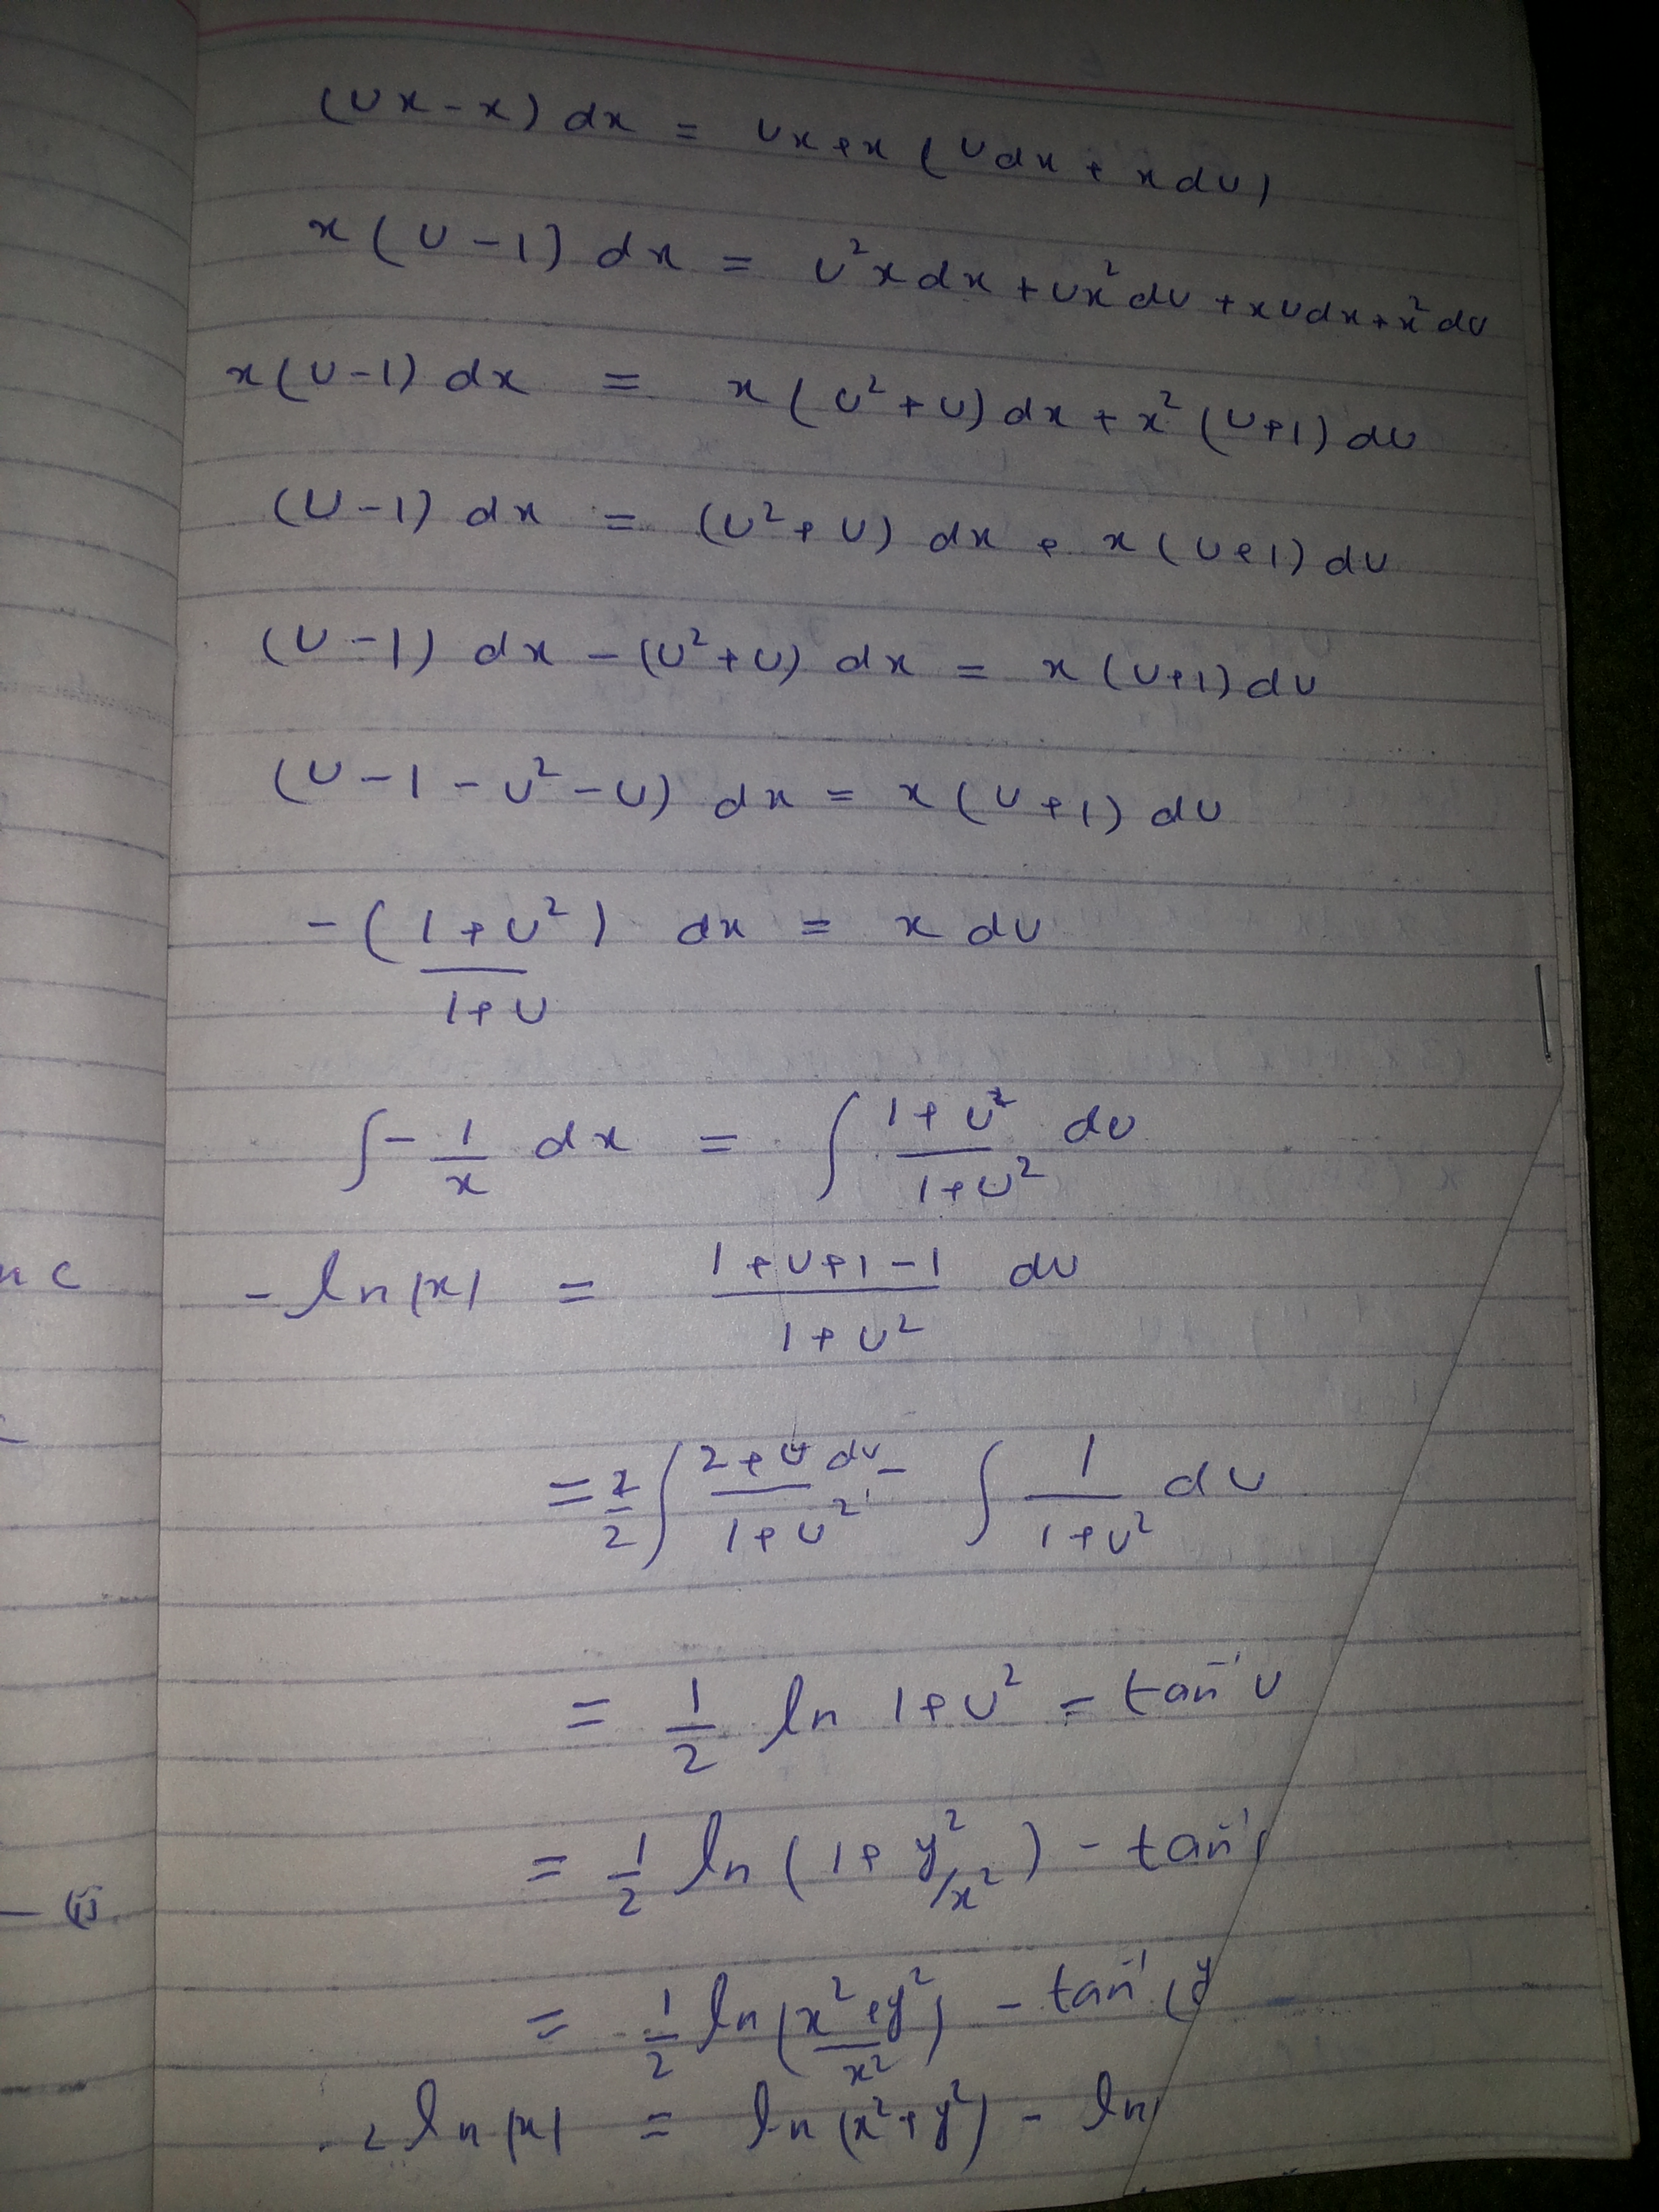 (Ux-x) dx = Ux+x (Udx + xdU)
x(U-1) dx = U²xdx + Ux²dU + xUdx + x²dU
x(U-1) dx = x(U²+U) dx + x²(U+1) dU
(U-1) dx = (U²+U) dx + x(U+1) dU
(U-1) dx - (U²+U) dx = x(U+1) dU
(U-1-U²-U) dx = x(U+1) dU
-(1+U²)/(1+U) dx = x dU
∫ - 1/x dx = ∫ (1+U²)/(1+U²) dU
nc
- ln|x| = (1+U+1-1)/(1+U²) dU
= 2/2 ∫ (2+U dU)/(1+U²) - ∫ 1/(1+U²) dU
= 1/2 ln 1+U² - tan⁻¹U
= 1/2 ln(1+y²/x²) - tan⁻¹(
= 1/2 ln((x²+y²)/x²) - tan⁻¹(y
ln|x| = ln(x²+y²) - ln